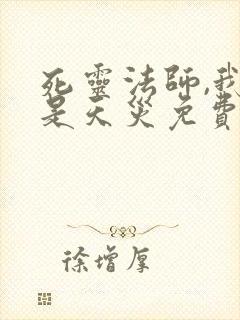 死靈法師,我
是天災免費
徐增厚